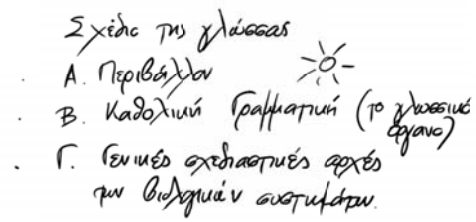 Σχέδιο της γλώσσας
Α. Περιβάλλον
Β. Καθολική Γραμματική (το γλωσσικό όργανο)
Γ. Γενικές σχεδιαστικές αρχές
των βιολογικών συστημάτων.